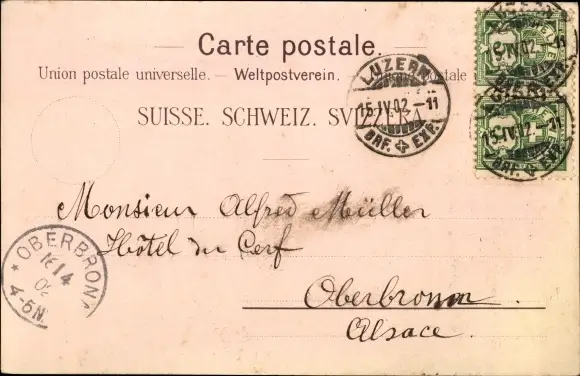 Carte postale.
Union postale universelle. — Weltpostverein. postale
SUISSE. SCHWEIZ. SVIZZERA
LUZERN
15.IV.02.-11
BRF. EXP.
15.IV.02.-11
15.IV.02.-11
BRF. EXP.
Monsieur Alfred Müller
Hôtel du Cerf
Oberbronn.
Alsace.
OBERBRONN
16/4
02
4-5N